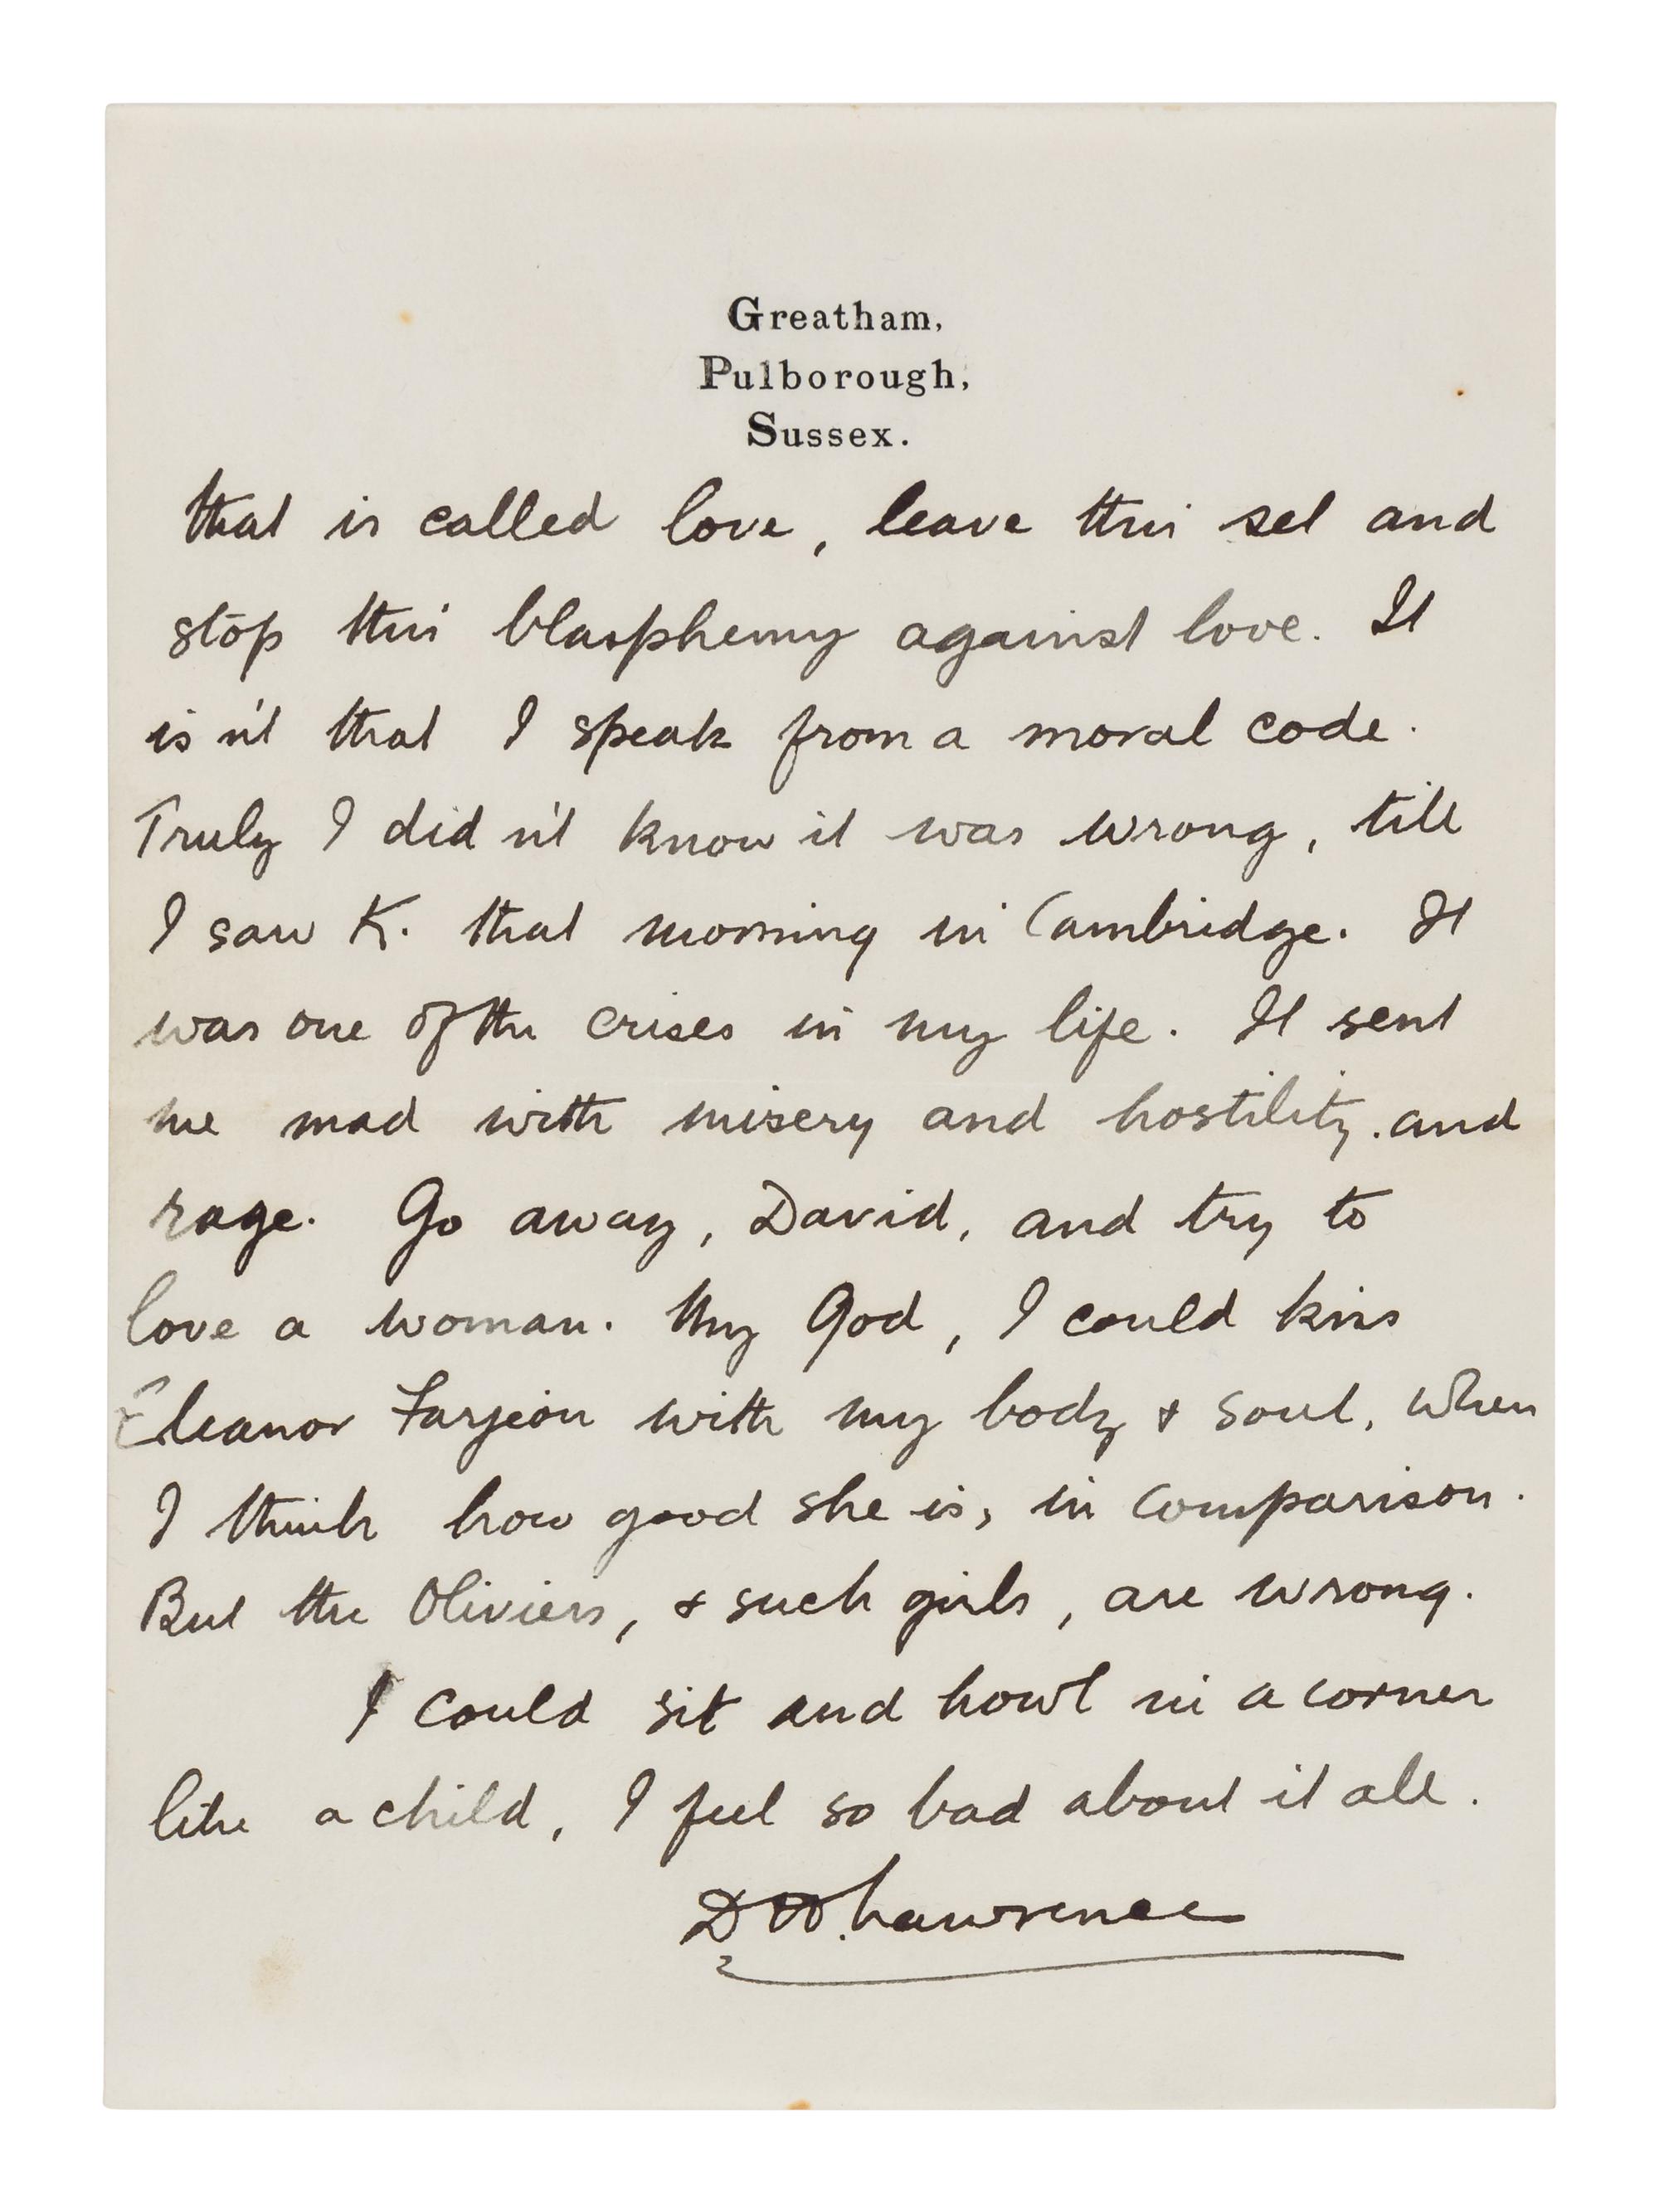 Greatham,
Pulborough,
Sussex.
that is called love, leave this set and
stop this blasphemy against love. It
isn't that I speak from a moral code.
Truly I didn't know it was wrong, till
I saw K. that morning in Cambridge. It
was one of the crises in my life. It sent
me mad with misery and hostility and
rage. Go away, David, and try to
love a woman. My God, I could kiss
Eleanor Farjeon with my body & soul, when
I think how good she is, in comparison.
But the Oliviers, & such girls, are wrong.
I could sit and howl in a corner
like a child, I feel so bad about it all.
D.H. Lawrence